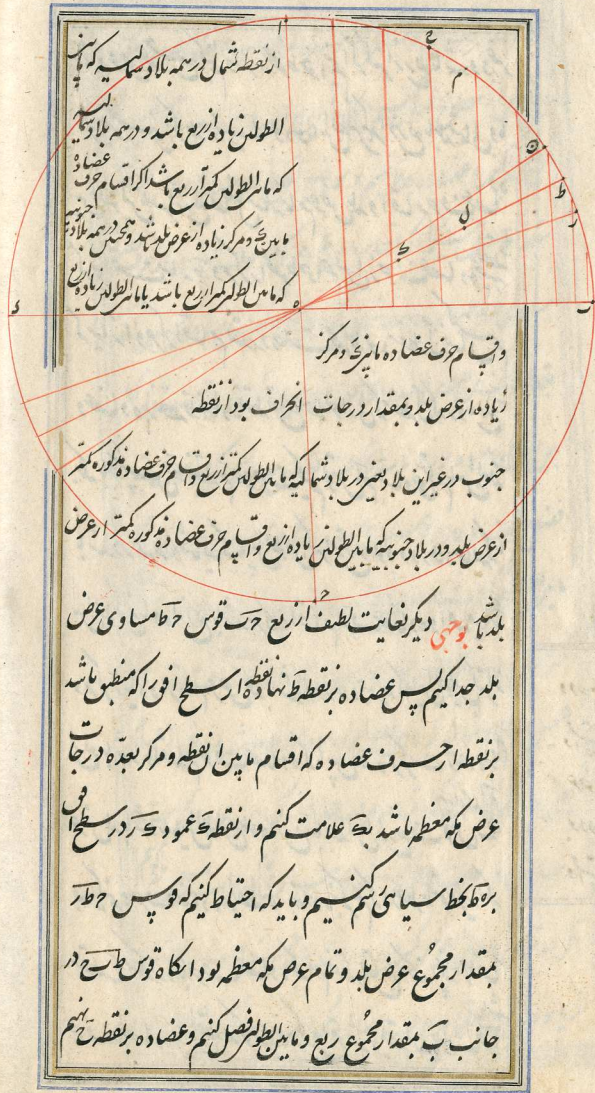 از نقطه شمال در همه بلاد شمالیه که مابین
الطولین زیاده از ربع باشد و در همه بلاد شمالیه
که مابین الطولین کمتر از ربع باشد اگر اقسام حرف عضاده
مابین ک و مرکز زیاده از عرض بلد باشد و همچنین در همه بلاد جنوبیه
که مابین الطولین کمتر از ربع باشد یا مابین الطولین زیاده از ربع
و اقسام حرف عضاده مابین ک و مرکز
زیاده از عرض بلد و بمقدار درجات انحراف بود از نقطه
جنوب در غیر این بلاد یعنی در بلاد شمالیه که مابین الطولین کمتر از ربع و اقسام حرف عضاده مذکوره کمتر
از عرض بلد و در بلاد جنوبیه که مابین الطولین زیاده از ربع و اقسام حرف عضاده مذکوره کمتر از عرض
بلد باشد بوجهی دیگر بغایت لطیف از ربع ح ب قوس ح ط مساوی عرض
بلد جدا کنیم پس عضاده بر نقطه ط نهاده نقطه از سطح افق را که منطبق باشد
بر نقطه از حرف عضاده که اقسام مابین آن نقطه و مرکز بعده درجات
عرض مکه معظمه باشد به ک علامت کنیم و از نقطه ک عمود ک ر در سطح افق
بر ه ط بخط سیاهی رسم کنیم و باید که احتیاط کنیم که قوس ح ط ر
بمقدار مجموع عرض بلد و تمام عرض مکه معظمه بود آنگاه قوس ط ح در
جانب ب بمقدار مجموع ربع و مابین الطولین فصل کنیم و عضاده بر نقطه ح نهیم